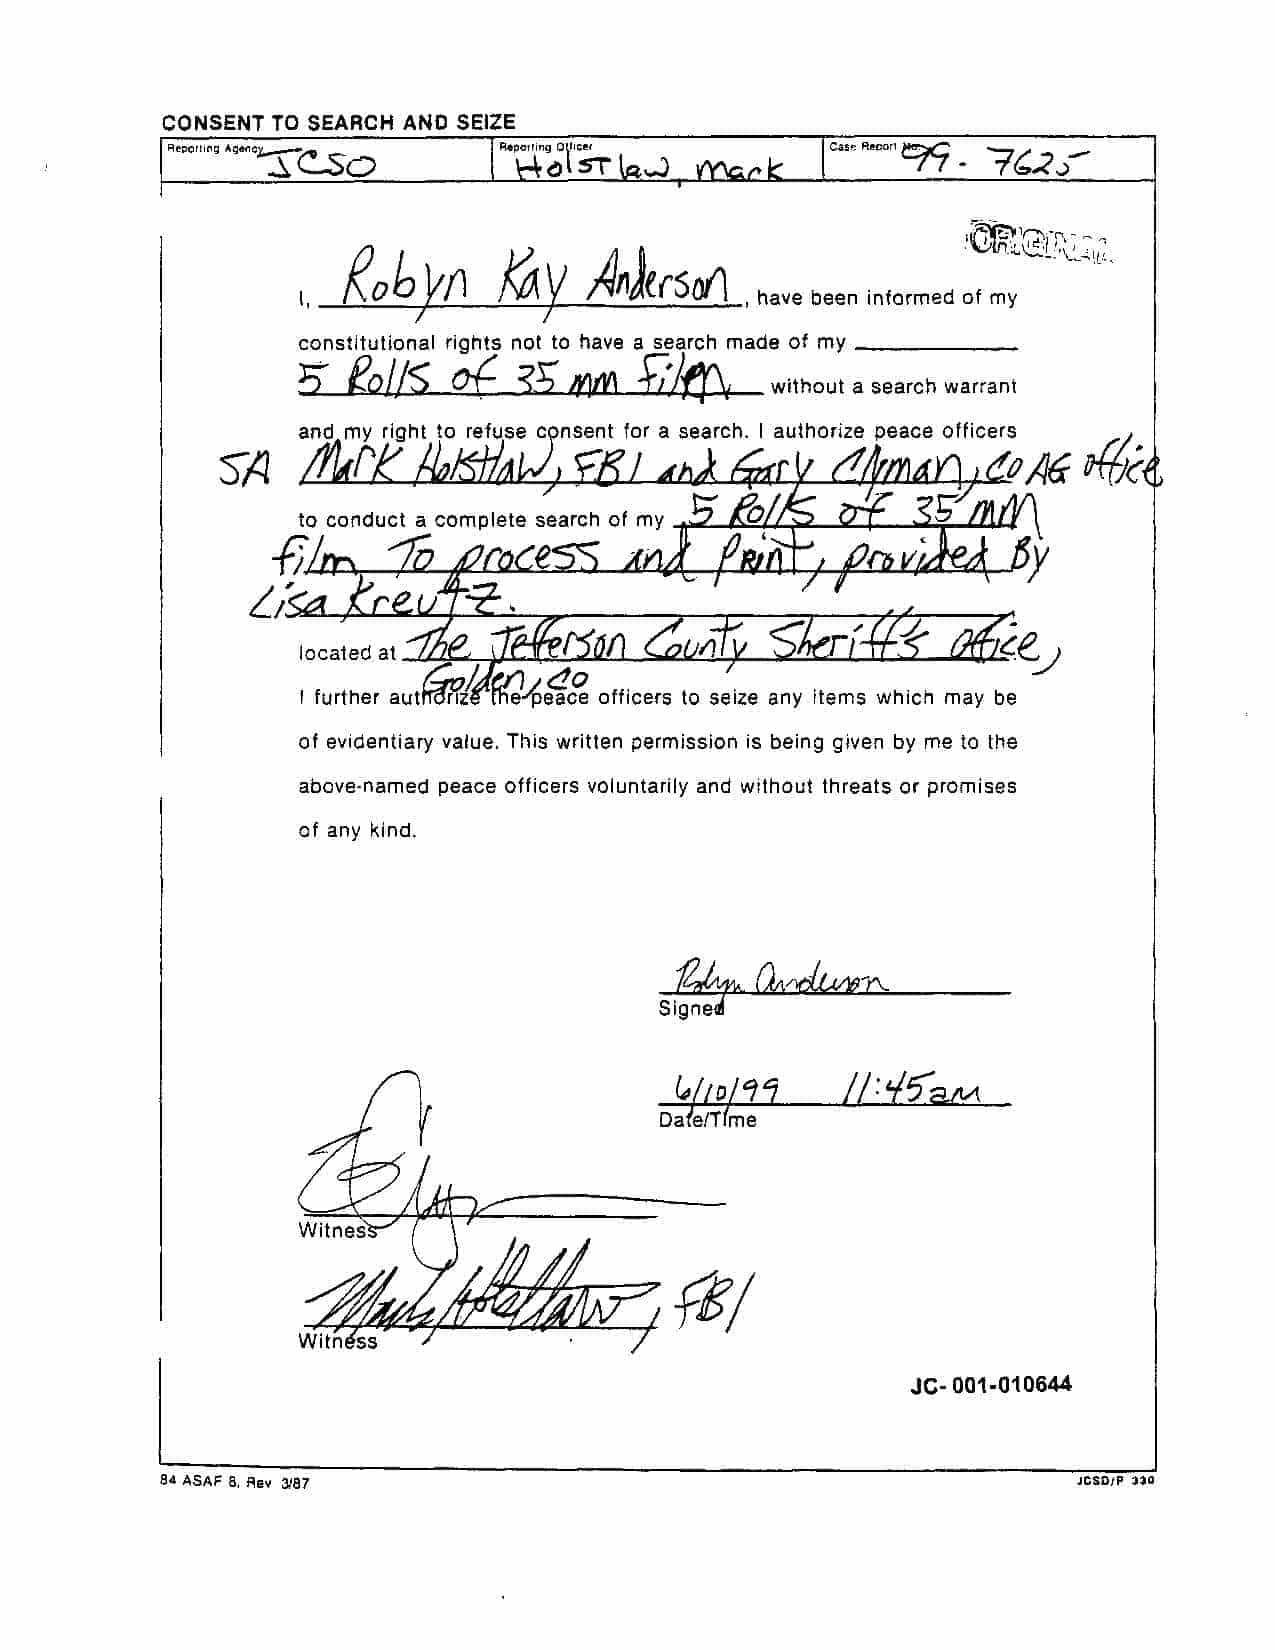 CONSENT TO SEARCH AND SEIZE
Reporting Agency Reporting Officer Case Report No.
JCSO Holstlaw, Mark 99-7625
ORIGINAL
I, Robyn Kay Anderson, have been informed of my
constitutional rights not to have a search made of my
5 Rolls of 35 mm Film without a search warrant
and my right to refuse consent for a search. I authorize peace officers
SA Mark Holstlaw, FBI and Gary Clyman, CO AG office
to conduct a complete search of my 5 Rolls of 35 mm
film To process and Print, provided By
Lisa Kreutz.
located at The Jefferson County Sheriff's office,
Golden, CO
I further authorize the peace officers to seize any items which may be
of evidentiary value. This written permission is being given by me to the
above-named peace officers voluntarily and without threats or promises
of any kind.
Robyn Anderson
Signed
6/10/99 11:45am
Date/Time
Witness
Mark Holstlaw, FBI
Witness
JC-001-010644
84 ASAF 8, Rev 3/87 JCSD/P 330